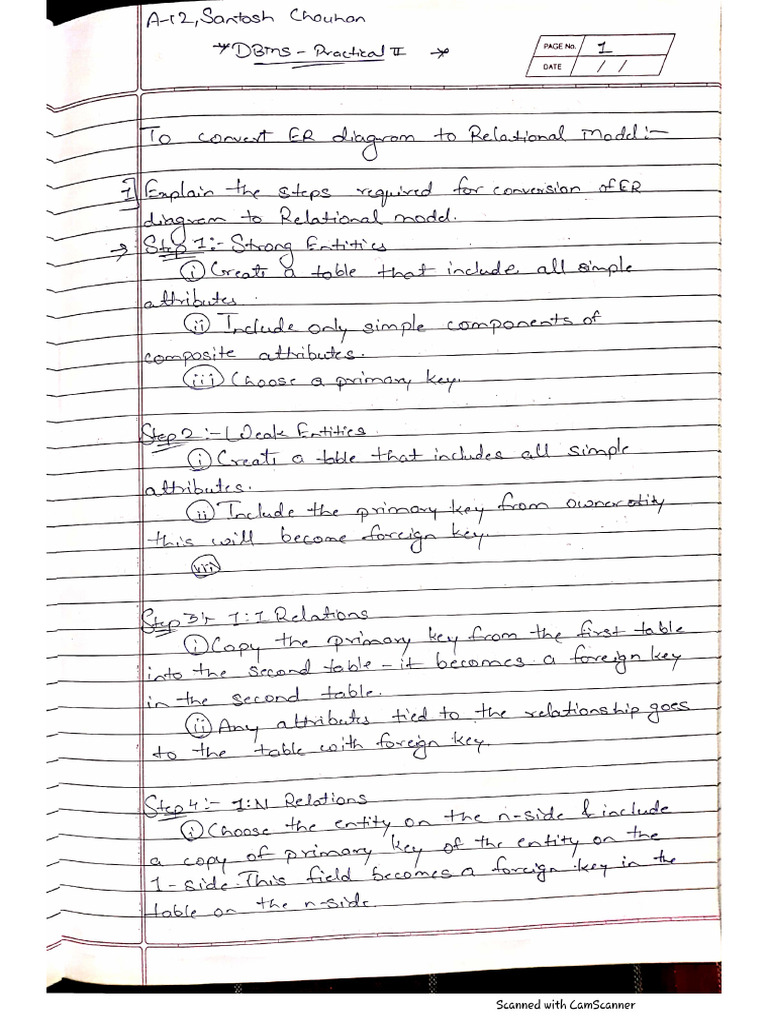 A-12, Santosh Chouhan
* DBMS - Practical II *
PAGE No. 1
DATE / /
To convert ER diagram to Relational Model:-
1] Explain the steps required for conversion of ER
diagram to Relational model.
→ Step 1:- Strong Entities
(i) Create a table that include all simple
attributes.
(ii) Include only simple components of
composite attributes.
(iii) Choose a primary key.
Step 2:- Weak Entities
(i) Create a table that includes all simple
attributes.
(ii) Include the primary key from owner
this will become foreign key.
Step 3:- 1:1 Relations
(i) Copy the primary key from the first table
into the second table - it becomes a foreign key
in the second table.
(ii) Any attributes tied to the relationship goes
to the table with foreign key.
Step 4:- 1:N Relations
(i) Choose the entity on the n-side & include
a copy of primary key of the entity on the
1-side. This field becomes a foreign key in the
table on the n-side.
Scanned with CamScanner